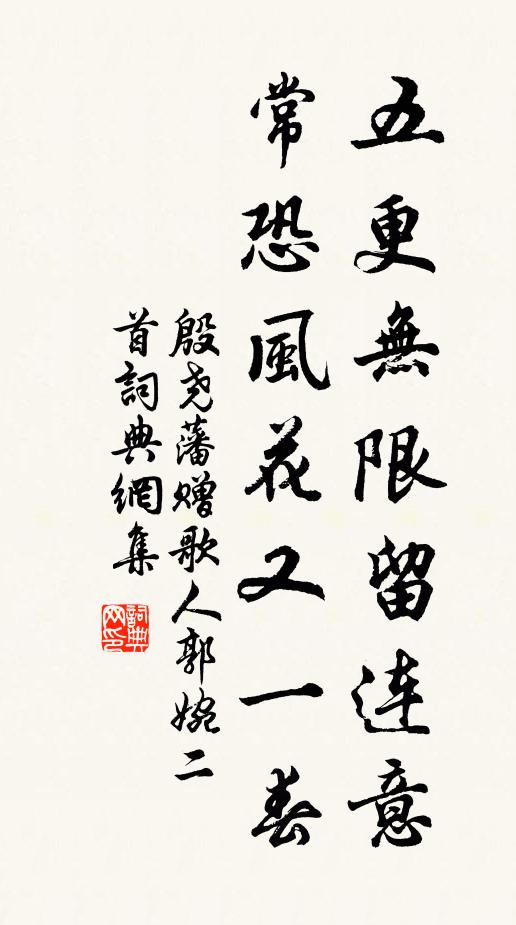 五更無限留連意
常恐風花又一春
殷尧藩赠歌人郭婉二
首詞典網集
詞典网印